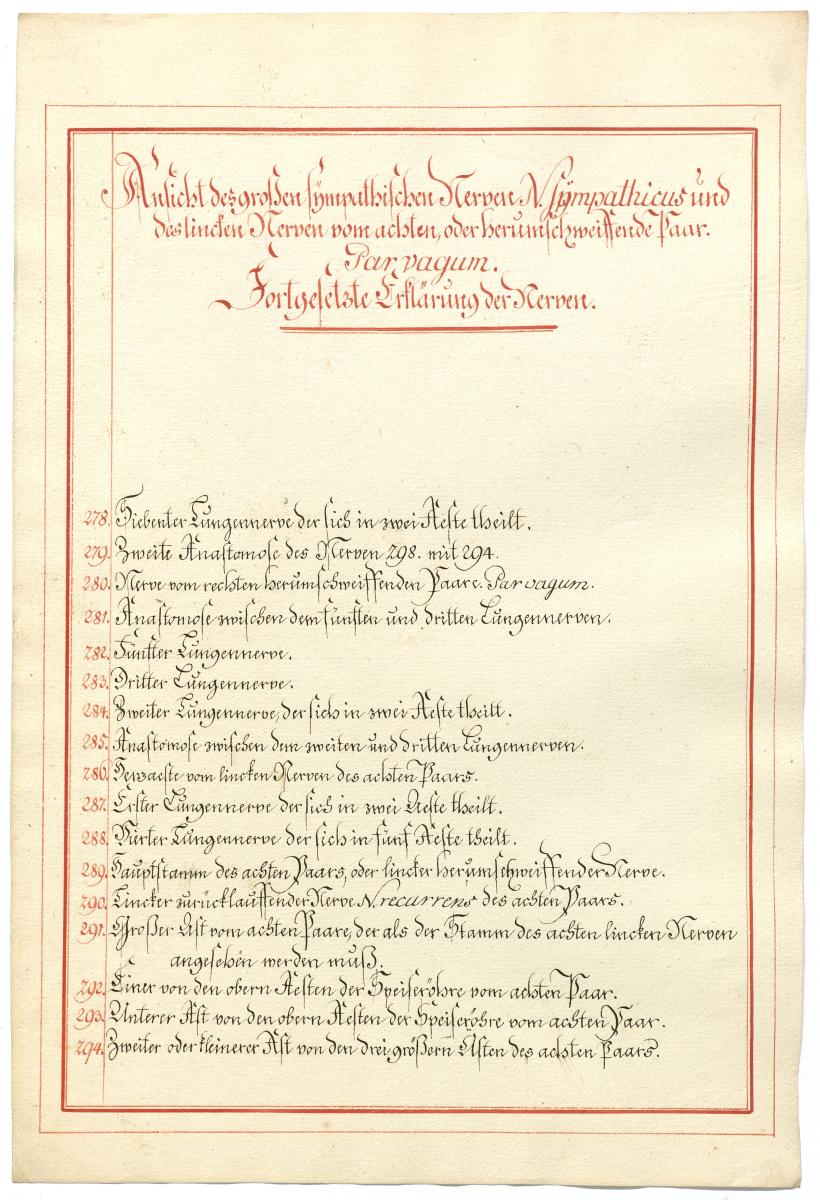 Ansicht des großen sympathischen Nerven N. sÿmpathicus und
des lincken Nerven vom achten, oder herumschweiffende Paar.
Par vagum.
Fortgesetzte Erklärung der Nerven.
278. Siebenter Lungennerve der sich in zwei Aeste theilt.
279. Zweite Anastomose des Nerven 298. mit 294.
280. Nerve vom rechten herumschweiffenden Paare. Par vagum.
281. Anastomose zwischen dem fünften und dritten Lungennerven.
282. Fünfter Lungennerve.
283. Dritter Lungennerve.
284. Zweiter Lungennerve, der sich in zwei Aeste theilt.
285. Anastomose zwischen dem zweiten und dritten Lungennerven.
286. Herzaeste vom lincken Nerven des achten Paars.
287. Erster Lungennerve der sich in zwei Aeste theilt.
288. Vierter Lungennerve der sich in fünf Aeste theilt.
289. Hauptstamm des achten Paars, oder lincker herumschweiffender Nerve.
290. Lincker zurücklauffender Nerve N. recurrens des achten Paars.
291. Großer Ast vom achten Paare, der als der Stamm des achten lincken Nerven
angesehen werden muß.
292. Einer von den obern Aesten der Speiseröhre vom achten Paar.
293. Unterer Ast von den obern Aesten der Speiseröhre vom achten Paar.
294. Zweiter oder kleinerer Ast von den drei größern Ästen des achten Paars.